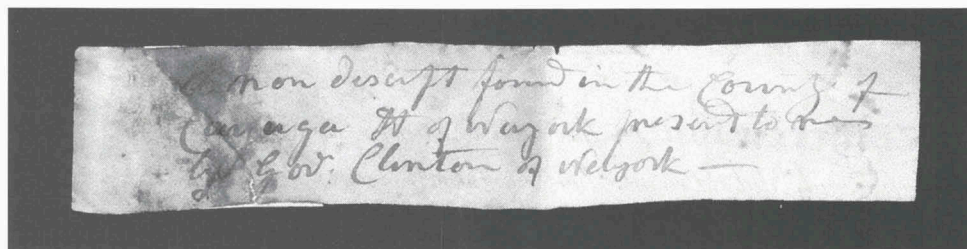 A non descript found in the County of
Cayuga St of Newyork present to me
by Gov. Clinton of Newyork —